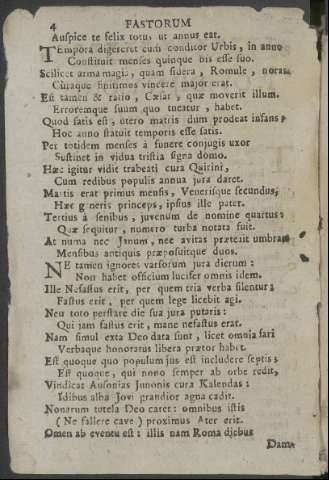 4 FASTORUM
Auspice te felix totus ut annus eat.
TEmpora digereret cum conditor Urbis, in anno
Constituit menses quinque bis esse suo.
Scilicet arma magis, quam sidera, Romule, noras
Curaque finitimos vincere major erat.
Est tamen & ratio, Cæsar, quæ moverit illum.
Erroremque suum quo tueatur, habet.
Quod satis est, utero matris dum prodeat infans,
Hoc anno statuit temporis esse satis.
Per totidem menses à funere conjugis uxor
Sustinet in vidua tristia signa domo.
Hæc igitur vidit trabeati cura Quirini,
Cum redibus populis annua jura daret.
Martis erat primus mensis, Venerisque secundus,
Hæc generis princeps, ipsius ille pater.
Tertius à senibus, juvenum de nomine quartus:
Quæ sequitur, numero turba notata fuit.
At numa nec Janum, nec avitas præterit umbras
Mensibus antiquis præposuitque duos.
NE tamen ignores variorum jura dierum:
Non habet officium lucifer omnis idem.
Ille Nefastus erit, per quem tria verba silentur:
Fastus erit, per quem lege licebit agi.
Neu toto perstare die sua jura putaris:
Qui jam fastus erit, mane nefastus erat.
Nam simul exta Deo data sunt, licet omnia fari
Verbaque honoratus libera prætor habet.
Est quoque quo populum jus est includere septis;
Est quoque, qui nono semper ab orbe redit,
Vindicat Ausonias Junonis cura Kalendas:
Idibus alba Jovi grandior agna cadit.
Nonarum tutela Deo caret: omnibus istis
(Ne fallere cave) proximus Ater erit.
Omen ab eventu est: illis nam Roma diebus
Dama